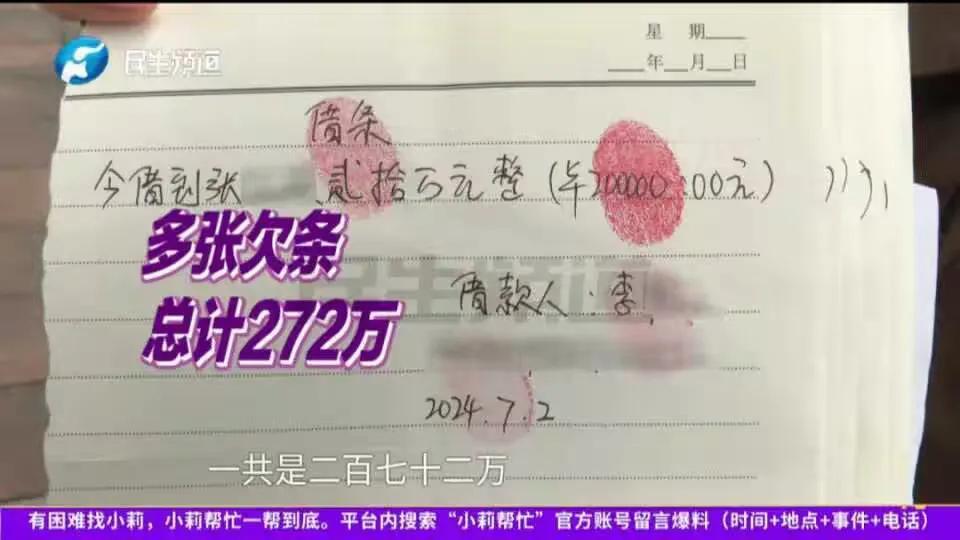 星 期____
___年__月__日
民生频道
借条
今借到张 贰拾万元整(¥200000.00元)
多张欠条
民生频道
借款人:李
总计272万
2024.7.2
一共是二百七十二万
有困难找小莉，小莉帮忙一帮到底。平台内搜索“小莉帮忙”官方账号留言爆料（时间+地点+事件+电话）